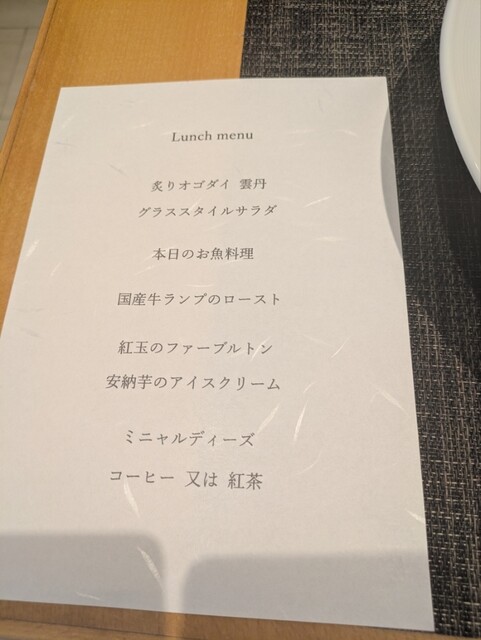 Lunch menu
炙りオゴダイ 雲丹
グラススタイルサラダ
本日のお魚料理
国産牛ランプのロースト
紅玉のファーブルトン
安納芋のアイスクリーム
ミニャルディーズ
コーヒー 又は 紅茶